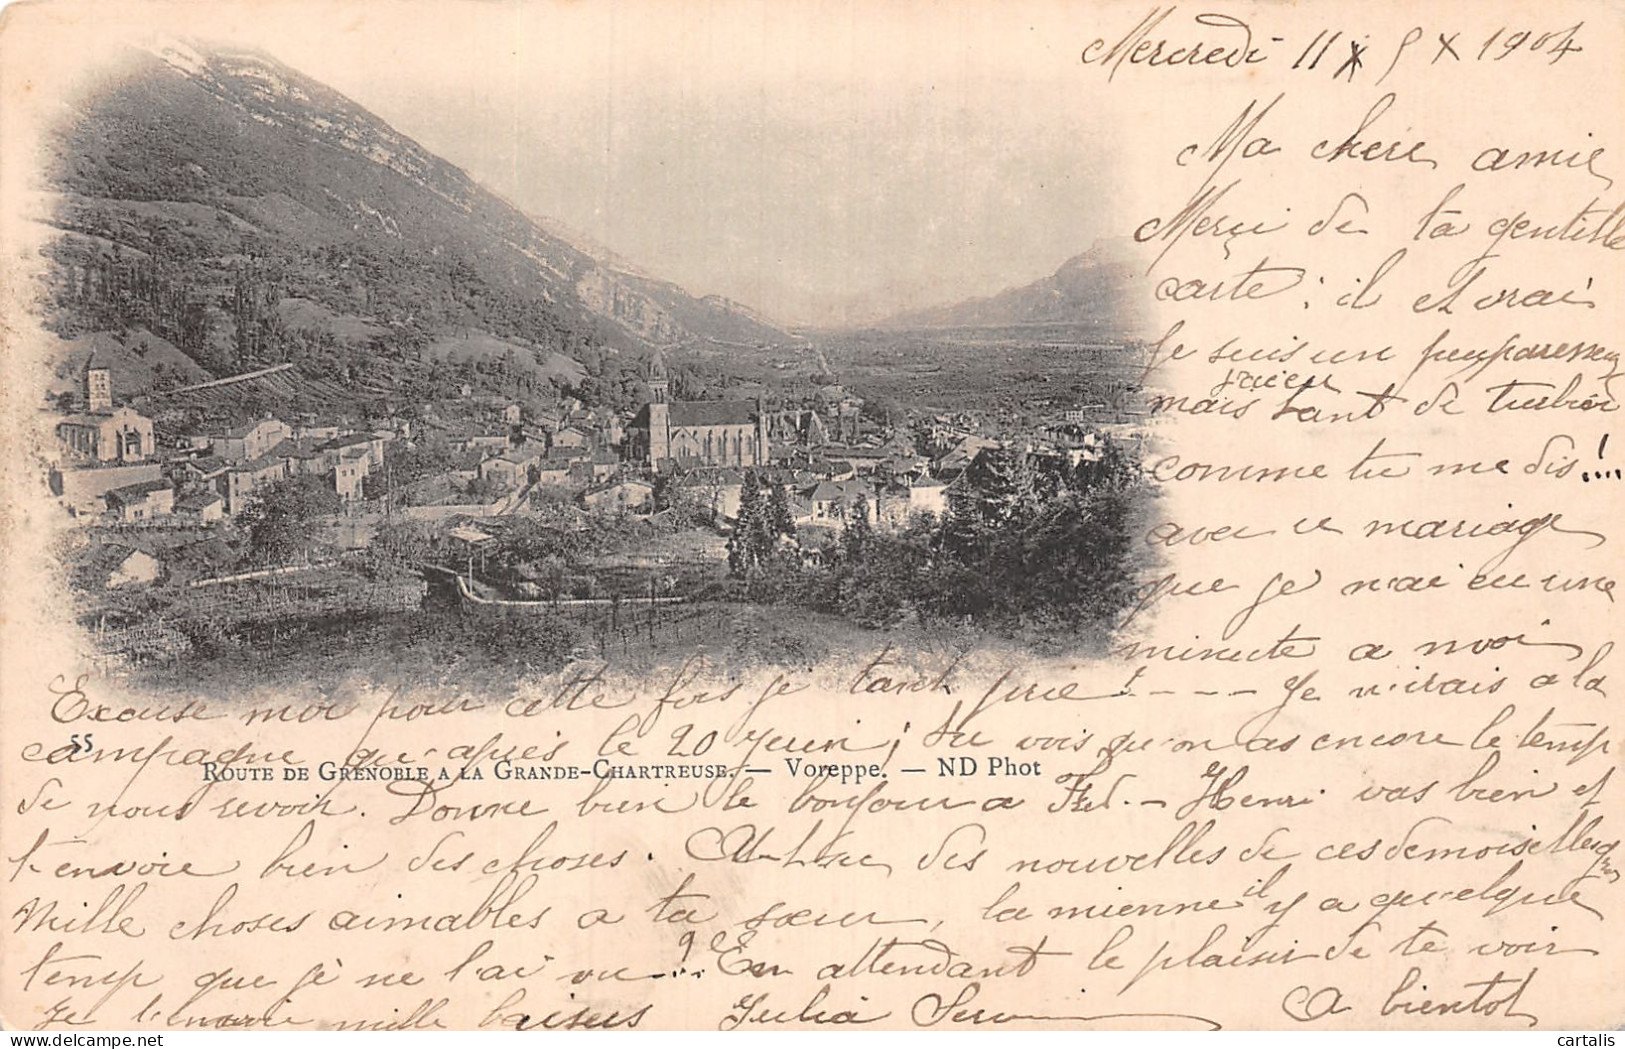 Mercredi 11 x 5 x 1904
Ma chère amie
Merçi de ta gentille
carte ; il et vrai
Je suis un peu paresseuse
j'ai eu
mais tant de turbin
comme tu me dis !...
avec ce mariage
que je n'ai eu une
minute a moi
Excuse moi pour cette fois je tanh prie ! - - - - Je n'irais a la
campagne qu'après le 20 Juin ; Tu vois qu'on as encore le temp
55
ROUTE DE GRENOBLE A LA GRANDE-CHARTREUSE. — Voreppe. — ND Phot
de nous revoir. Donne bien le bonjour a Fd. - Henri vas bien et
t'envoie bien des choses. des nouvelles de ces demoiselles
Mille choses aimables a ta sœur, la mienne il y a quelque
temp que je ne l'ai vu ...? En attendant le plaisir de te voir
Je t'envoie mille baisers Julia A bientot
cartalis